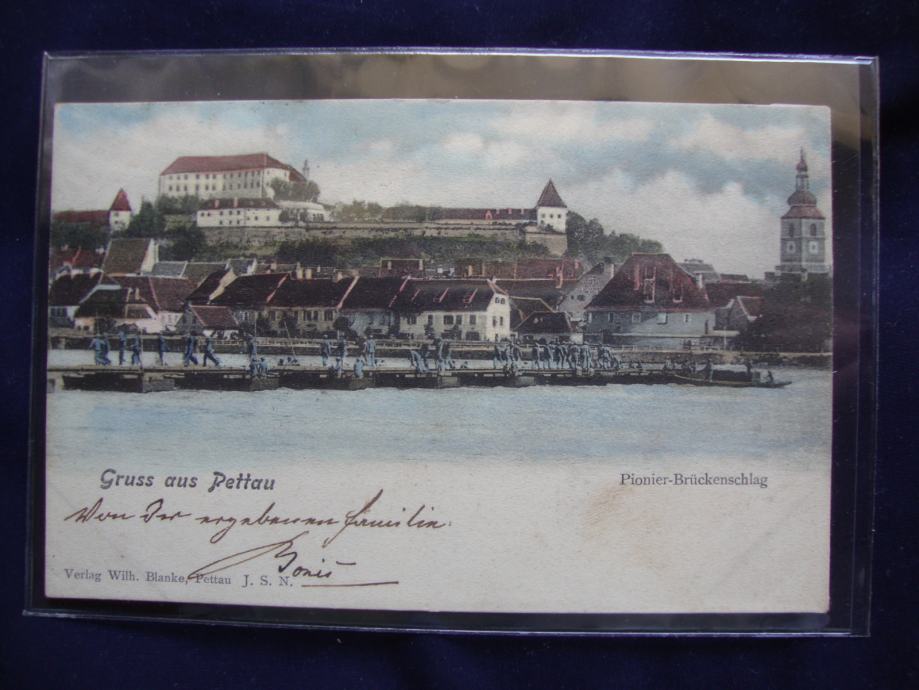 Gruss aus Pettau
Pionier-Brückenschlag
Von der ergebenen Familie
Verlag Wilh. Blanke, Pettau J. S. N.